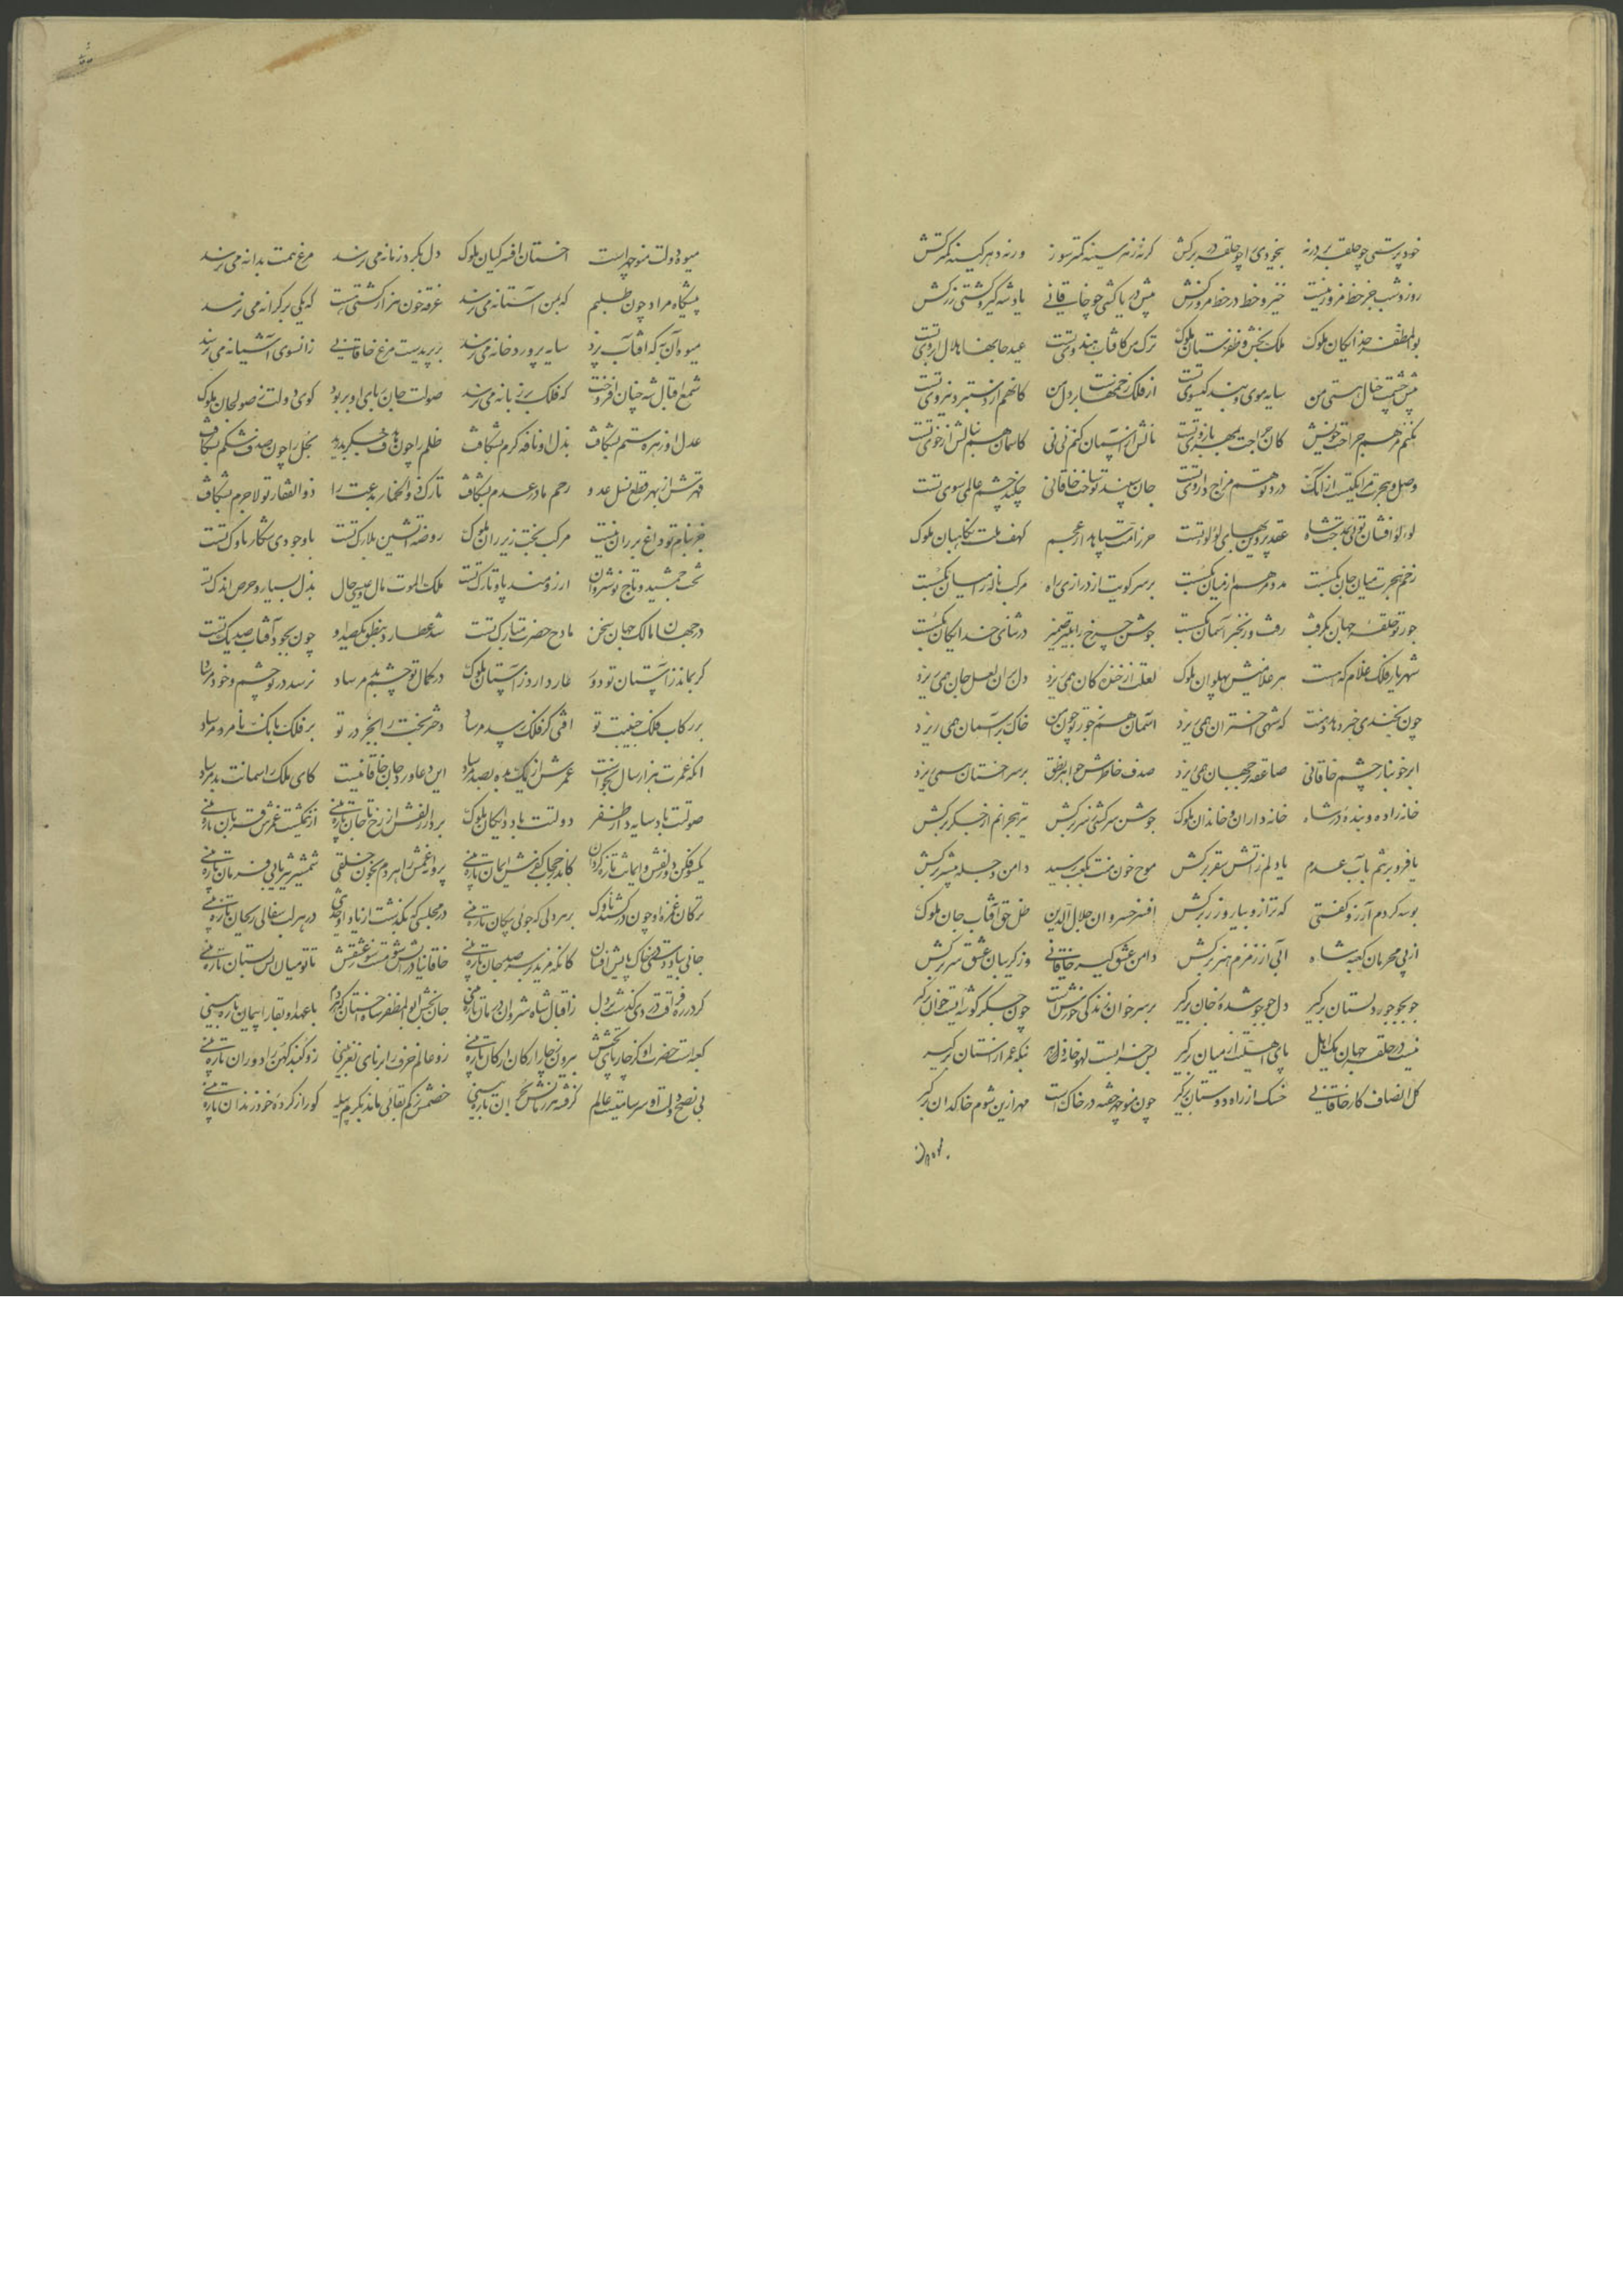 خود پرستی چو حلقه بر در نه بیخودی را چو حلقه در برکش گر نه زهر سینه کمتر سوز ورنه دهر کینه کمتر کش
روز و شب جز خط مزور نیست خیز و خط در خط مزور کش پیش دریاکشی چو خاقانی یاد شه گیر و کشتی زر کش
بوالمظفر خدایگان ملوک ملک بخش و ظفرستان ملوک ترک من کافتاب هندوی تست عید جانها هلال ابروی تست
پیش چشمت خیال هستی من سایه موی و بند گیسوی تست از فلک زخمهاست بر دل من کانهم از دستبرد نیروی تست
نکنم مرهم جراحت خویش کان جراحت بمهر بازوی تست نالش از آسمان کنم نی نی کاسمان هم بنالش از خوی تست
وصل و هجرت مرا یکیست از آنک درد تو هم مزاج داروی تست جان سپند تو ساخت خاقانی چکند چشم عالمی سوی تست
لولو افشان تویی بمدحت شاه عقد پروین بهای لولو تست حرز امت سپاهدار عجم کهف ملت نگاهبان ملوک
زخم هجرت میان جان بگسست مددم هم از میان بگسست بر سر کویت از درازی راه مرکب ناله را میان بگسست
جور تو حلقه جهان بگرفت رفت و زنجیر آسمان بگسست جوشن چرخ را بتیر ضمیر در ثنای خدایگان بگسست
شهریار فلک غلام که هست هر غلامیش پهلوان ملوک لعلت از خنده کان همی ریزد دل بر آن لعل جان همی ریزد
چون بخندی خبر دهد دهنت که شهی اختران همی ریزد آسمان هم ز جور تو چون من خاک بر سر آسمان همی ریزد
ابر خونبار چشم خاقانی صاعقه بر جهان همی ریزد صدف خاطرش جواهر نطق بر سر اخستان همی ریزد
خانه زاده و بنده در شاه خانه داران و خاندان ملوک جوشن سرکشی ز سر برکش تیر هجرانم از جگر برکش
یا فرو بر تنم بآب عدم یا دلم ز آتش سقر برکش موج خون منت بکعب رسید دامن حله بیشتر برکش
بوسه کردم آرزو گفتی که ترازو بیار و زر برکش افسر خسروان جلال الدین ظل حق آفتاب جان ملوک
از پی محرمان کعبه شاه آبی از زمزم هنر برکش دامن عشق گیر خاقانی وز گریبان عشق سر برکش
جو بجو جور دلستان برگیر دل جو جو شده ز جان برگیر بر سر خوان زندگی خورشت چون جگر گوشه ایست خوان برگیر
نیست در حلقه جهان یک اهل پای اهلیت از میان برگیر بس خرابست لهو خانه دهر بنگه عمر از آستان برگیر
گل انصاف کار خاقانی خسک از راه دوستان برگیر چون منوچهر خفته در خاک است مهر ازین شوم خاکدان برگیر
میوه دولت منوچهر است اخستان افسر کیان ملوک دل بکبر زمانه می نرسد مرغ همت بدانه می نرسد
پیشگاه مراد چون طلبیم که بمن آستانه می نرسد غرقه خون هزار کشتی هست که یکی بر کرانه می نرسد
میوه آن به که آفتاب پزد سایه پرورد خانه می نرسد بر پریدست مرغ خاقانی زانسوی آشیانه می نرسد
شمع اقبال شه چنان افروخت که فلک بر زبانه می نرسد صولت جان بپای او بربود گوی دولت ز صولجان ملوک
عدل او زهره ستم بشکافت بذل او نافه کرم بشکافت ظلم را چون هدف جگر بدرید بخل را چون صدف شکم بشکافت
قهرش از بهر قطع نسل عدو رحم مادر عدم بشکافت تارک ذوالخمار بدعت را ذوالفقار تو لاجرم بشکافت
جز بنام تو داغ بر ران نیست مرکب بخت زیر ران ملوک روضه آتشین بلارک تست باد جودی شکار ناوک تست
تخت جمشید و تاج نوشروان آرزومند پا و تارک تست ملک الموت مال و عیسی حال بذل بسیار و حرص اندک تست
در جهان مالک جهان سخن مادح حضرت مبارک تست شد عطارد بنطق یکصد و چون بجود آفتاب صد یک تست
گر بماند ز آستان تو دور عار دارد ز آستان ملوک در کمال تو چشم بد مرساد نرسد در تو چشم و خود مرساد
بر رکاب فلک جنیبت تو آفتی کز فلک رسد مرساد دختر بخت را بجز در تو بر فلک بانگ نامزد مرساد
آنکه عمرت هزار سال نخواست عمرش از یک به ده بصد مرساد این دعا ورد جان خاقانیست کای ملک آسمانت بد مرساد
صولتت باد سایه دار ظفر دولتت باد دایگان ملوک بردار زلفش از رخ تا جان تازه بینی از نیم کشت غمزش قربان تازه بینی
یکسو فکن دو زلفش و ایمانت تازه گردان کاندر حجاب کفرش ایمان تازه بینی پروای غمش را هر دم بخون خلقی شمشیر تیز یابی فرمان تازه بینی
ترکان غمزه او چون درکشند ناوک بر هر دلی که جوئی پیکان تازه بینی در مجلسی که بگذشت از یاد او حدیثی در هر لب سفالی ریحان تازه بینی
جانی بباد و دستی خاک پایش افشان کانگه مزید بر سر صد جان تازه بینی خاقانیا در آتش شو مست شو ز عشقش تا تو میان آتش بستان تازه بینی
گرد ره فراقت دی گذشت بر دل ز اقبال شاه شروان درمان تازه بینی جان بخش ابوالمظفر شاه اخستان کز هر دم با عهد او بقا را پیمان تازه بینی
کعبه است حضرت او کز چار پای تختش بیرون ز چار ارکان ارکان تازه بینی زو عالم خرف را برنای نغز بینی زو گنبد کهن را دوران تازه بینی
بی نصح دولت او سرسامیست عالم گرفته هر زمانش بحران تازه بینی خصمش ز کم بقائی ماند بکرم پیله کو راز کرده خود زندان تازه بینی